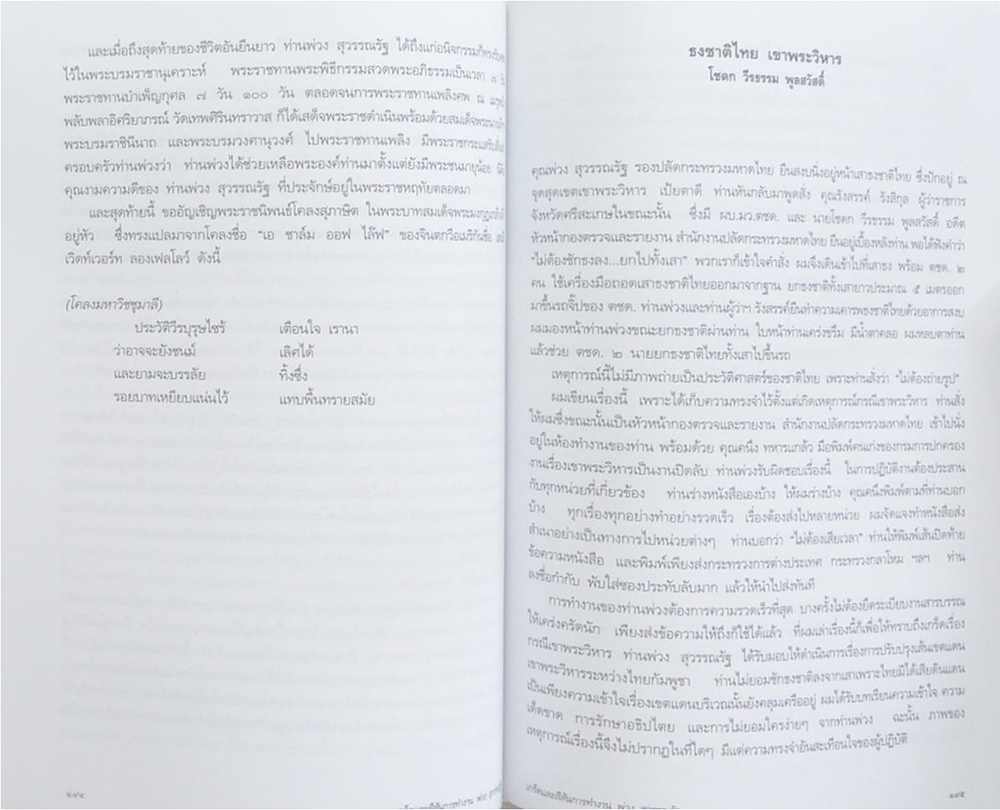 และเมื่อถึงสุดท้ายของชีวิตอันยืนยาว ท่านพ่วง สุวรรณรัฐ ได้ถึงแก่อนิจกรรมก็ทรงรับศพ
ไว้ในพระบรมราชานุเคราะห์ พระราชทานพระพิธีกรรมสวดพระอภิธรรมเป็นเวลา ๗ วัน
พระราชทานบำเพ็ญกุศล ๗ วัน ๑๐๐ วัน ตลอดจนการพระราชทานเพลิงศพ ณ เมรุหน้า
พลับพลาอิศริยาภรณ์ วัดเทพศิรินทราวาส ก็ได้เสด็จพระราชดำเนินพร้อมด้วยสมเด็จพระนางเจ้าฯ
พระบรมราชินีนาถ และพระบรมวงศานุวงศ์ ไปพระราชทานเพลิง มีพระราชกระแสรับสั่งแก่
ครอบครัวท่านพ่วงว่า ท่านพ่วงได้ช่วยเหลือพระองค์ท่านมาตั้งแต่ยังมีพระชนมายุน้อย
คุณงามความดีของ ท่านพ่วง สุวรรณรัฐ ที่ประจักษ์อยู่ในพระราชหฤทัยตลอดมา
และสุดท้ายนี้ ขออัญเชิญพระราชนิพนธ์โคลงสุภาษิต ในพระบาทสมเด็จพระมงกุฎเกล้าเจ้า
อยู่หัว ซึ่งทรงแปลมาจากโคลงชื่อ "เอ ซาล์ม ออฟ ไล๊ฟ" ของจินตกวีอเมริกันชื่อ เฮน
เวิดท์เวอร์ท ลองเฟลโลว์ ดังนี้
(โคลงมหาวิชชุมาลี)
ประวัติวีรบุรุษไซร้ เตือนใจ เรานา
ว่าอาจจะยังชนม์ เลิศได้
และยามจะบรรลัย ทิ้งซึ่ง
รอยบาทเหยียบแน่นไว้ แทบพื้นทรายสมัย
๑๗๔
เกร็ดและสีสันการทำงาน พ่วง สุวรรณรัฐ
ธงชาติไทย เขาพระวิหาร
โชดก วีรธรรม พูลสวัสดิ์
คุณพ่วง สุวรรณรัฐ รองปลัดกระทรวงมหาดไทย ยืนสงบนิ่งอยู่หน้าเสาธงชาติไทย ซึ่งปักอยู่ ณ
จุดสุดเขตเขาพระวิหาร เป้ยตาดี ท่านหันกลับมาพูดสั่ง คุณรังสรรค์ รังสิกุล ผู้ว่าราชการ
จังหวัดศรีสะเกษในขณะนั้น ซึ่งมี ผบ.มว.ตชด. และ นายโชดก วีรธรรม พูลสวัสดิ์ อดีต
หัวหน้ากองตรวจและรายงาน สำนักงานปลัดกระทรวงมหาดไทย ยืนอยู่เบื้องหลังท่าน พอได้ฟังคำว่า
"ไม่ต้องชักธงลง...ยกไปทั้งเสา" พวกเราก็เข้าใจคำสั่ง ผมจึงเดินเข้าไปที่เสาธง พร้อม ตชด. ๒
คน ใช้เครื่องมือถอดเสาธงชาติไทยออกมาจากฐาน ยกธงชาติทั้งเสายาวประมาณ ๕ เมตรออก
มาขึ้นรถจิ๊ปของ ตชด. ท่านพ่วงและท่านผู้ว่าฯ รังสรรค์ยืนทำความเคารพธงชาติไทยด้วยอาการสงบ
ผมมองหน้าท่านพ่วงขณะยกธงชาติผ่านท่าน ใบหน้าท่านเคร่งขรึม มีน้ำตาคลอ ผมหลบตาท่าน
แล้วช่วย ตชด. ๒ นายยกธงชาติไทยทั้งเสาไปขึ้นรถ
เหตุการณ์นี้ไม่มีภาพถ่ายเป็นประวัติศาสตร์ของชาติไทย เพราะท่านสั่งว่า "ไม่ต้องถ่ายรูป"
ผมเขียนเรื่องนี้ เพราะได้เก็บความทรงจำไว้ตั้งแต่เกิดเหตุการณ์กรณีเขาพระวิหาร ท่านสั่ง
ให้ผมซึ่งขณะนั้นเป็นหัวหน้ากองตรวจและรายงาน สำนักงานปลัดกระทรวงมหาดไทย เข้าไปนั่ง
อยู่ในห้องทำงานของท่าน พร้อมด้วย คุณคนึง ทหารแกล้ว มือพิมพ์คนเก่งของกรมการปกครอง
งานเรื่องเขาพระวิหารเป็นงานปิดลับ ท่านพ่วงรับผิดชอบเรื่องนี้ ในการปฏิบัติงานต้องประสาน
กับทุกหน่วยที่เกี่ยวข้อง ท่านร่างหนังสือเองบ้าง ให้ผมร่างบ้าง คุณคนึงพิมพ์ตามที่ท่านบอก
บ้าง ทุกเรื่องทุกอย่างทำอย่างรวดเร็ว เรื่องต้องส่งไปหลายหน่วย ผมจัดแจงทำหนังสือส่ง
สำเนาอย่างเป็นทางการไปหน่วยต่างๆ ท่านบอกว่า "ไม่ต้องเสียเวลา" ท่านให้พิมพ์เส้นปิดท้าย
ข้อความหนังสือ และพิมพ์เพียงส่งกระทรวงการต่างประเทศ กระทรวงกลาโหม ฯลฯ ท่าน
ลงชื่อกำกับ พับใส่ซองประทับลับมาก แล้วให้นำไปส่งทันที
การทำงานของท่านพ่วงต้องการความรวดเร็วที่สุด บางครั้งไม่ต้องยึดระเบียบงานสารบรรณ
ให้เคร่งครัดนัก เพียงส่งข้อความให้ถึงก็ใช้ได้แล้ว ที่ผมเล่าเรื่องนี้ก็เพื่อให้ทราบถึงเกร็ดเรื่อง
กรณีเขาพระวิหาร ท่านพ่วง สุวรรณรัฐ ได้รับมอบให้ดำเนินการเรื่องการปรับปรุงเส้นเขตแดน
เขาพระวิหารระหว่างไทยกัมพูชา ท่านไม่ยอมชักธงชาติลงจากเสาเพราะไทยมิได้เสียดินแดน
เป็นเพียงความเข้าใจเรื่องเขตแดนบริเวณนั้นยังคลุมเครืออยู่ ผมได้รับบทเรียนความเข้าใจ ความ
เด็ดขาด การรักษาอธิปไตย และการไม่ยอมใครง่ายๆ จากท่านพ่วง ฉะนั้น ภาพของ
เหตุการณ์เรื่องนี้จึงไม่ปรากฏในที่ใดๆ มีแต่ความทรงจำอันสะเทือนใจของผู้ปฏิบัติ
เกร็ดและสีสันการทำงาน พ่วง สุวรรณรัฐ
๑๗๕